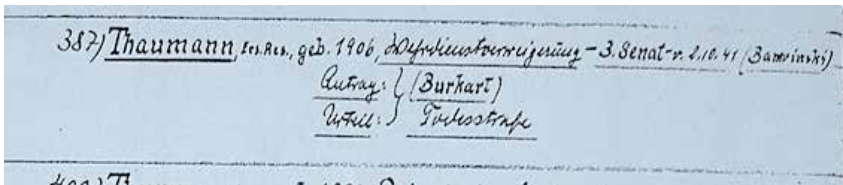 387) Thaumann, Ers.Res., geb. 1906, Wehrdienstverweigerung - 3. Senat - v. 2.10.41 (Barwinski)
Antrag: } (Burkart)
Urteil: } Todesstrafe